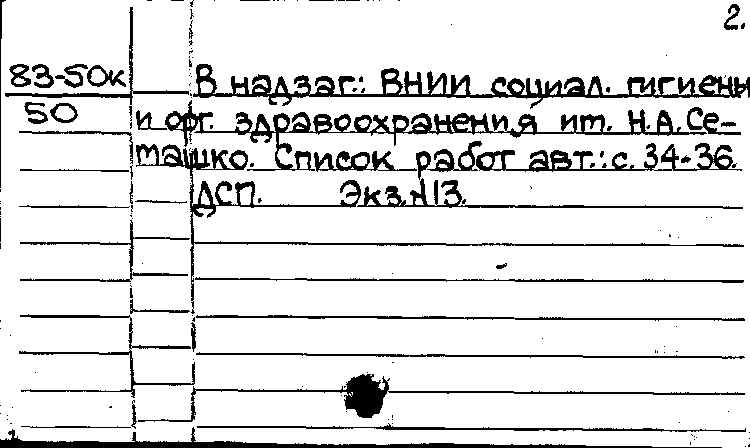 2.
83-50к
50
В надзаг.: ВНИИ социал. гигиены
и орг. здравоохранения им. Н.А. Се-
машко. Список работ авт.: с. 34-36.
ДСП. Экз. №13.